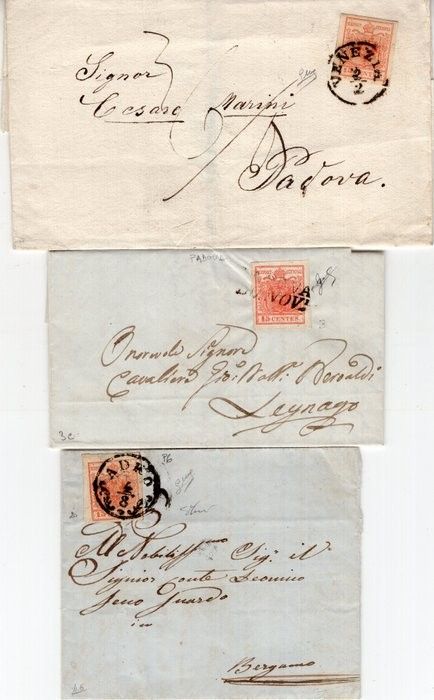 VENEZIA
2
2
Signor
Cesare Marini
Padova.
PADOVA
NOV.
15 CENTES
Onorevole Signore
Cavaliere Gio: Batt. Beroaldi
Legnago
3c
ADRO
4
8
P6
Al Nobiliss.mo Sig. il
Signior conte Leonino
Seco Suardo
in
Bergamo